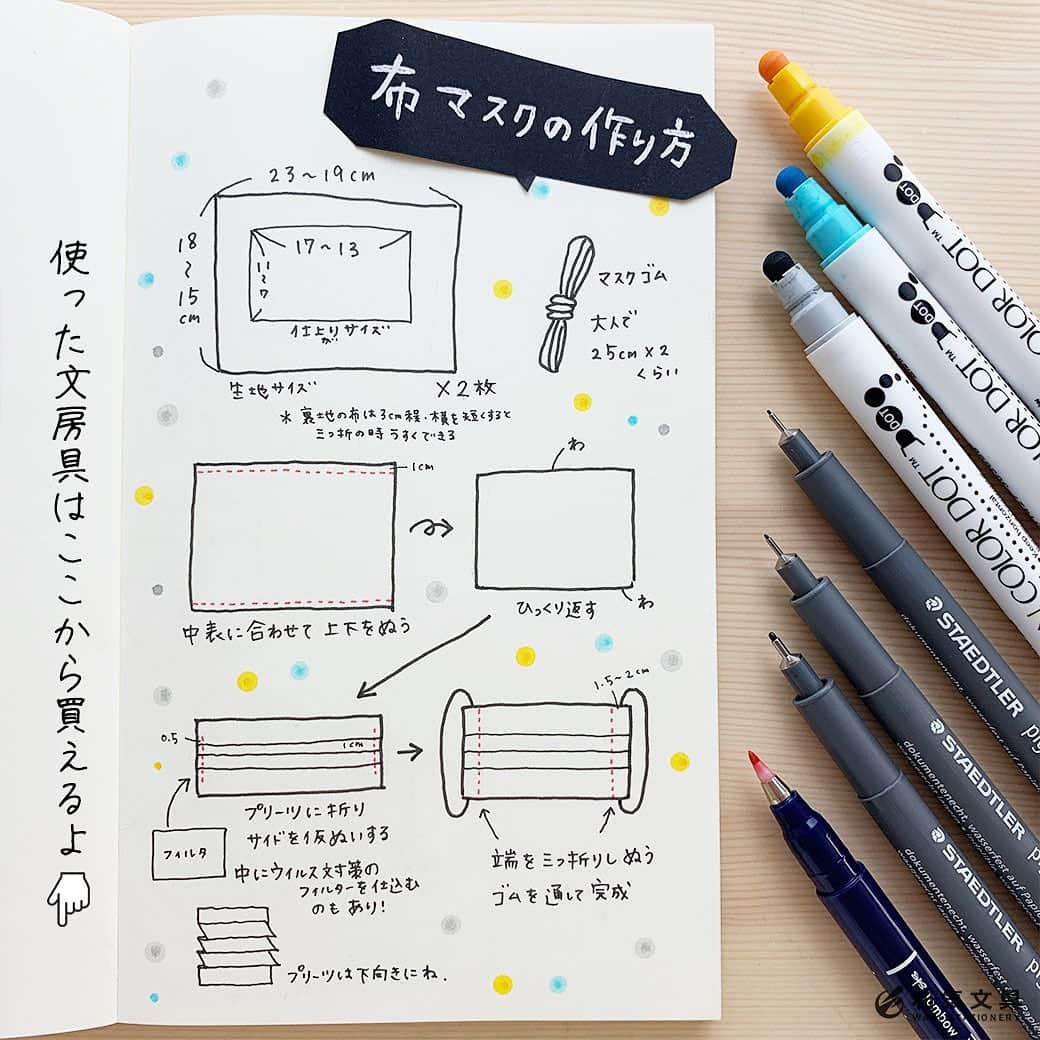 布マスクの作り方
23〜19cm
18〜15cm
17〜13
11〜7
仕上りサイズ
が
生地サイズ
×2枚
マスクゴム
大人で
25cm×2
くらい
※裏地の布は3cm程、横を短くすると
三っ折の時うすくできる
1cm
わ
わ
中表に合わせて上下をぬう
ひっくり返す
0.5
1cm
1.5~2cm
プリーツに折り
サイドを仮ぬいする
フィルタ
中にウィルス対策の
フィルターを仕込む
のもあり!
端を三っ折りしぬう
ゴムを通して完成
プリーツは下向きにね.
使った文房具はここから買えるよ
COLOR DOT™ DOT
COLOR DOT™ DOT
COLOR DOT™ DOT
Keep horizontal
STAEDTLER
STAEDTLER
STAEDTLER
dokumentenecht, wasserfest auf Papier
dokumentenecht, wasserfest auf Papier
Tombow
文具
STATIONERY